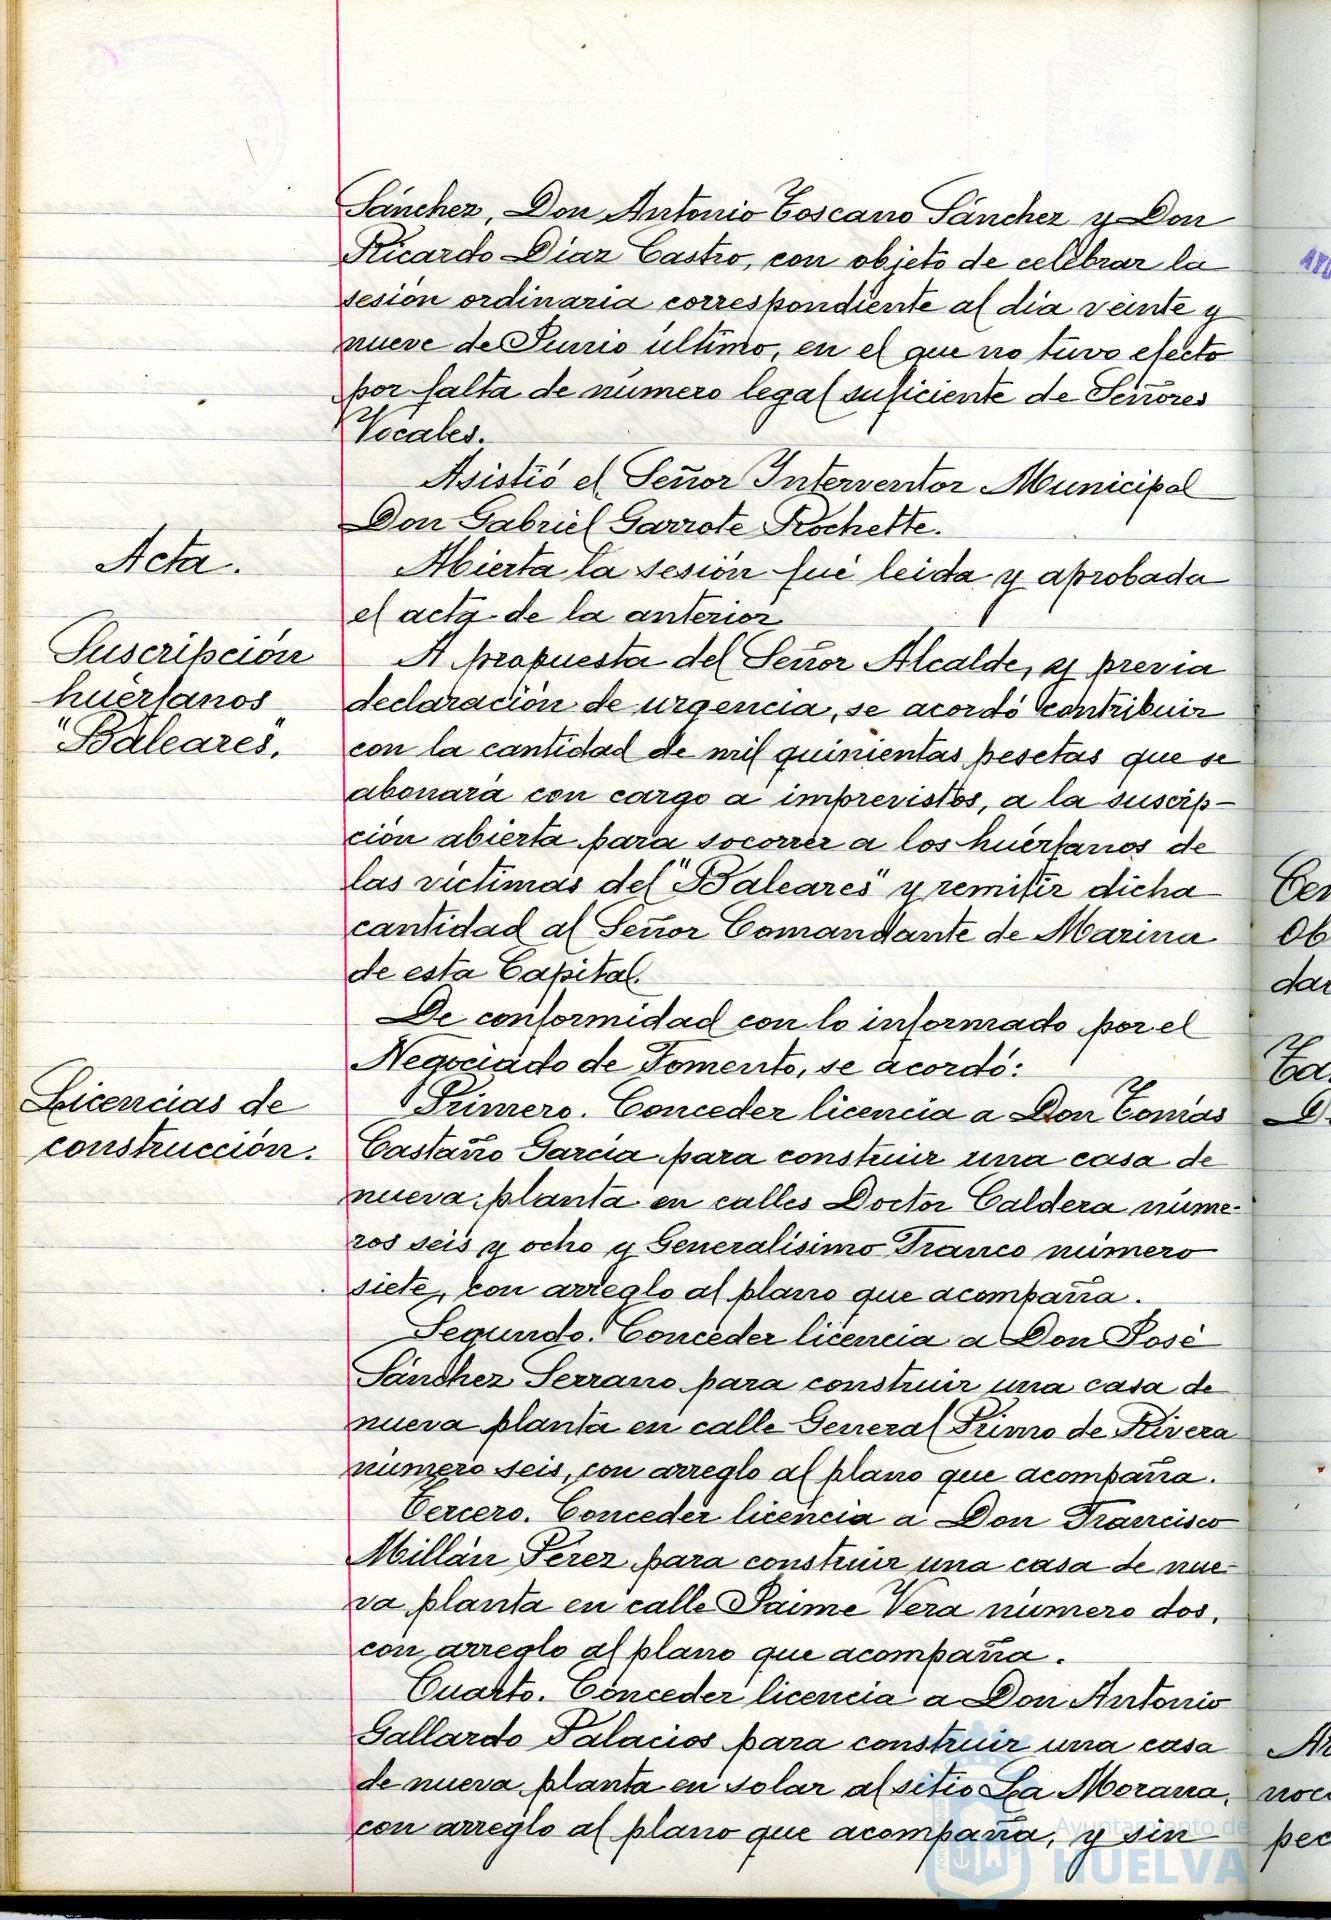 Sánchez, Don Antonio Toscano Sánchez y Don
Ricardo Díaz Castro, con objeto de celebrar la
sesión ordinaria correspondiente al día veinte y
nueve de Junio último, en el que no tuvo efecto
por falta de número legal suficiente de Señores
Vocales.
Asistió el Señor Interventor Municipal
Don Gabriel Garrote Rochette.
Acta.
Abierta la sesión fué leida y aprobada
el acta de la anterior
Suscripción
huérfanos
"Baleares".
A propuesta del Señor Alcalde, y previa
declaración de urgencia, se acordó contribuir
con la cantidad de mil quinientas pesetas que se
abonará con cargo a imprevistos, a la suscrip-
ción abierta para socorrer a los huérfanos de
las víctimas del "Baleares" y remitir dicha
cantidad al Señor Comandante de Marina
de esta Capital.
De conformidad con lo informado por el
Negociado de Fomento, se acordó:
Licencias de
construcción.
Primero. Conceder licencia a Don Tomás
Castaño García para construir una casa de
nueva planta en calles Doctor Caldera núme-
ros seis y ocho y Generalísimo Franco número
siete, con arreglo al plano que acompaña.
Segundo. Conceder licencia a Don José
Sánchez Serrano para construir una casa de
nueva planta en calle General Primo de Rivera
número seis, con arreglo al plano que acompaña.
Tercero. Conceder licencia a Don Francisco
Millán Pérez para construir una casa de nue-
va planta en calle Jaime Vera número dos,
con arreglo al plano que acompaña.
Cuarto. Conceder licencia a Don Antonio
Gallardo Palacios para construir una casa
de nueva planta en solar al sitio La Morana,
con arreglo al plano que acompaña, y sin
Ayuntamiento de
HUELVA